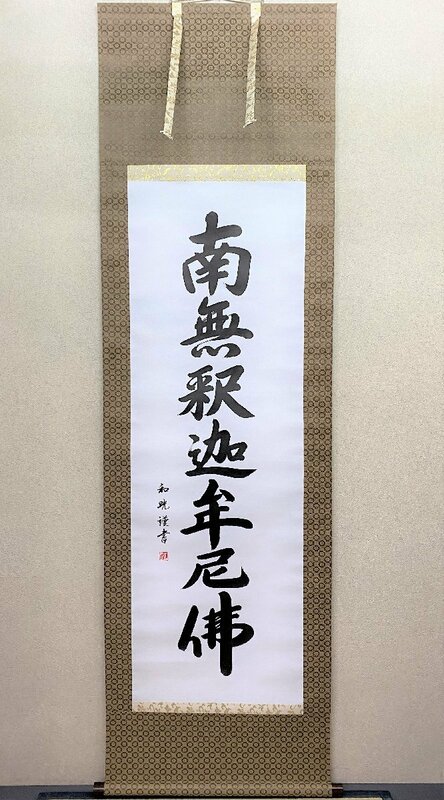 南無釈迦牟尼佛
和暁謹書